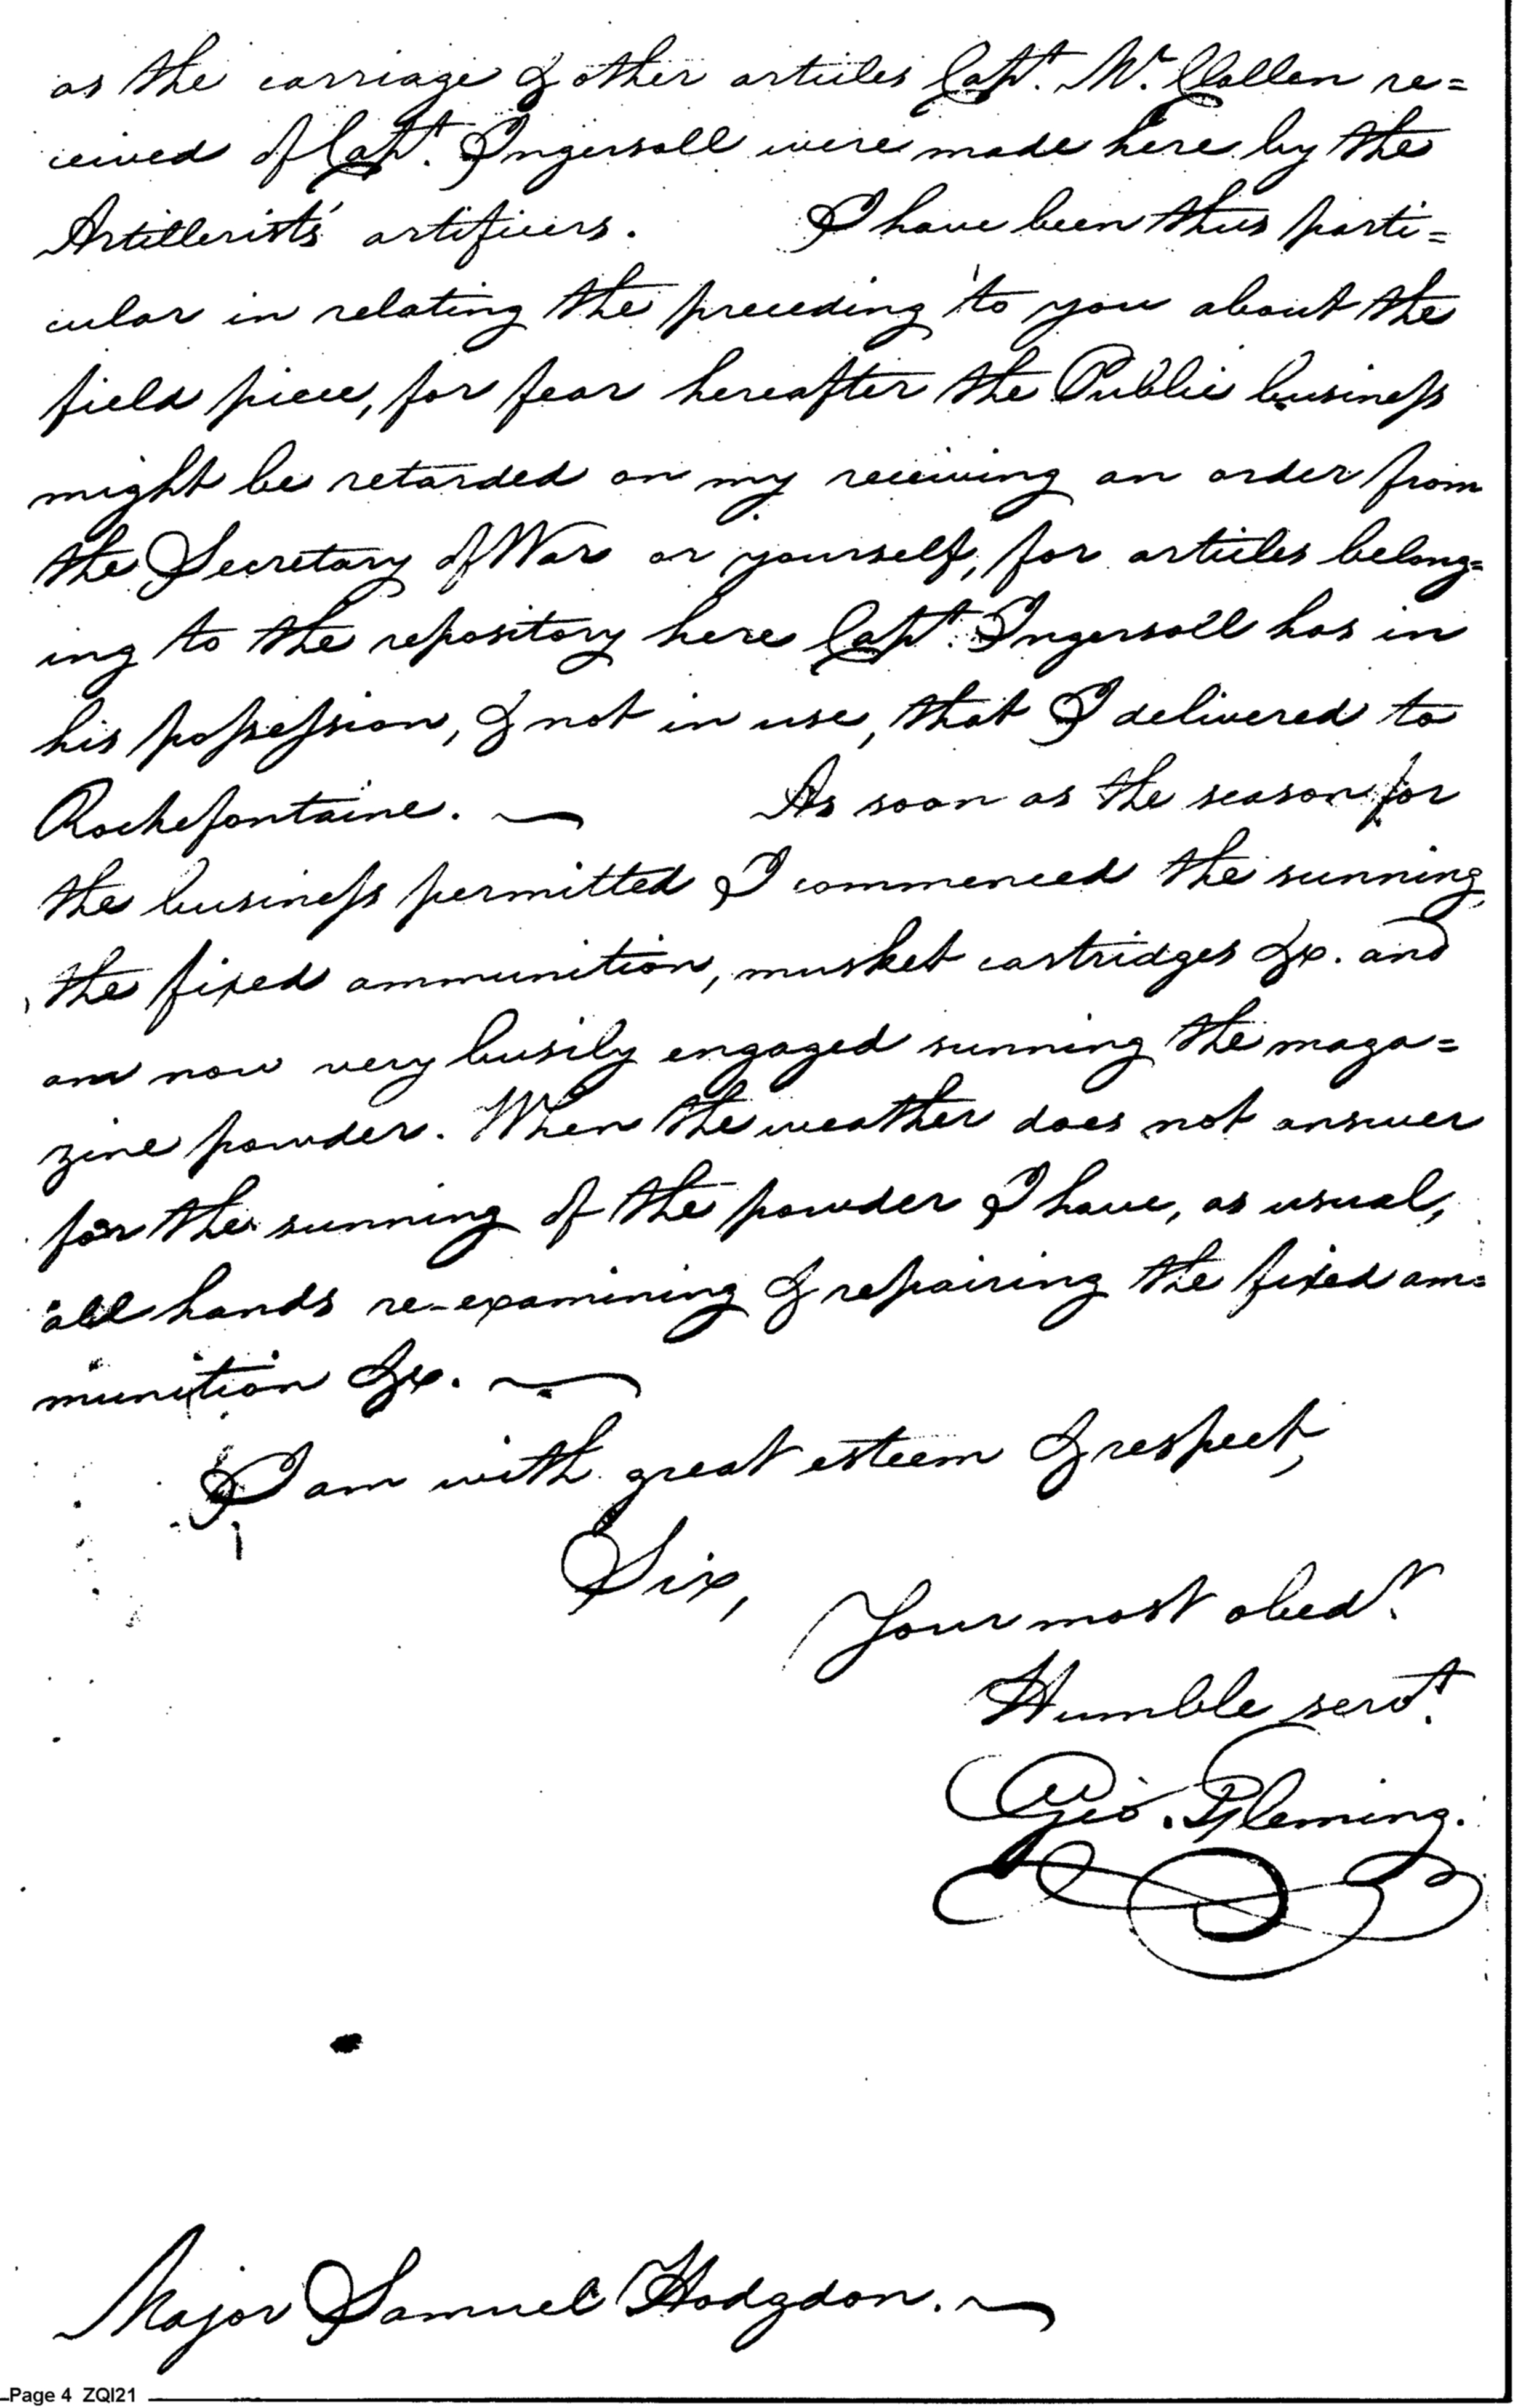 as the carriage & other articles Capt. Mc. Clallen re=
ceived of Capt. Ingersoll were made here by the
Artillerists' artificers. I have been thus parti=
cular in relating the preceding to you about the
field piece, for fear hereafter the Public business
might be retarded on my receiving an order from
the Secretary of War or yourself, for articles belong=
ing to the repository here Capt. Ingersoll has in
his possession, & not in use, that I delivered to
Rochefontaine. — As soon as the season for
the business permitted I commenced the sunning,
the fixed ammunition, musket cartridges &c. and
am now very busily engaged sunning the maga=
zine powder. When the weather does not answer
for the sunning of the powder I have, as usual,
all hands re-examining & repairing the fixed am=
munition &c. —
I am with great esteem & respect,
Sir,
Your most obedt.
Humble servt.
Geo. Fleming.
Major Samuel Hodgdon. —
Page 4 ZQI21